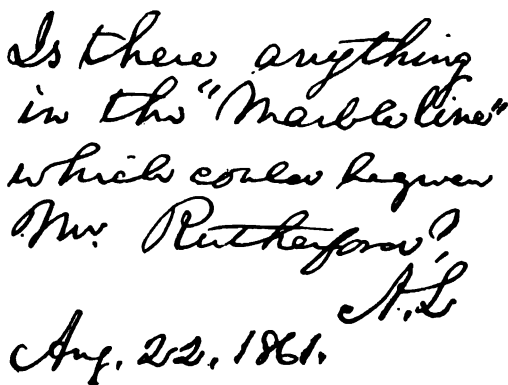 Is there anything
in the "Marble line"
which could be given
Mr. Rutherford?
A. L
Aug. 22, 1861.